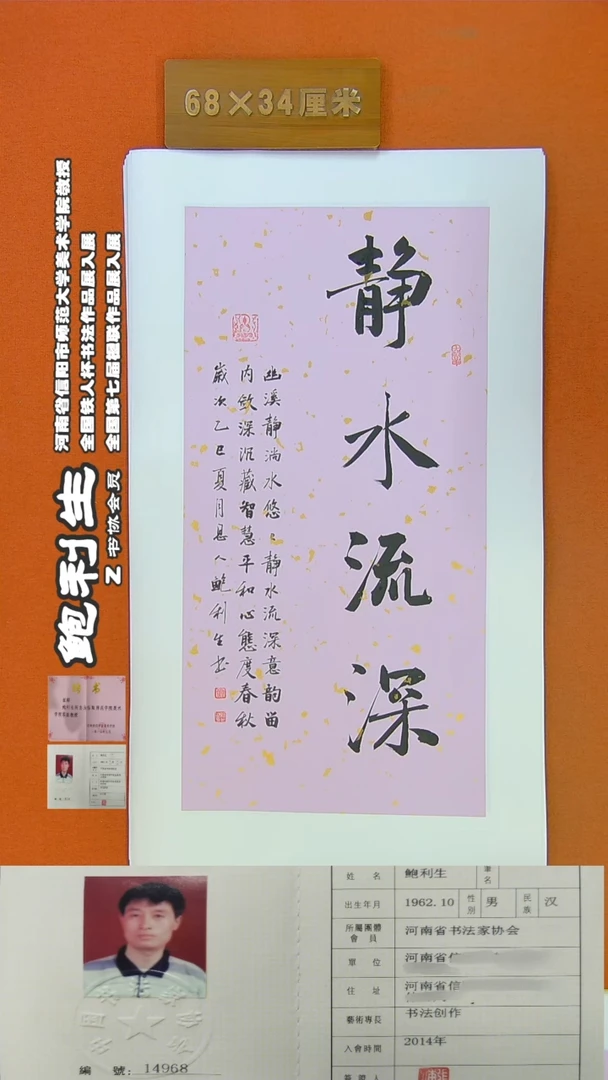 68×34厘米
河南省信阳市师范大学美术学院教授
全国铁人杯书法作品展入展
全国第七届楹联作品展入展
鲍利生
Z 书协会员
静水流深
幽溪静淌水悠〻静水流深意韵留
内敛深沉藏智慧平和心態度春秋
歲次乙巳夏月息人鲍利生书
姓 名 鲍利生 筆名
出生年月 1962.10 性别 男 民族 汉
所屬團體會員 河南省书法家协会
單 位 河南省信
住 址 河南省信
藝術專長 书法创作
入會時間 2014年
編 號：14968